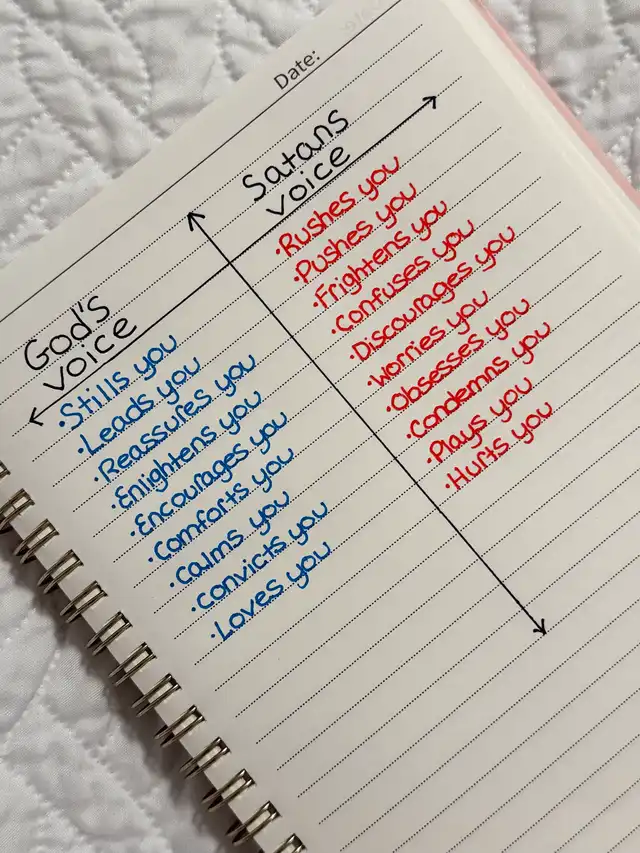 Date:
God's
voice
• Stills you
• Leads you
• Reassures you
• Enlightens you
• Encourages you
• Comforts you
• Calms you
• Convicts you
• Loves you
Satans
voice
• Rushes you
• Pushes you
• Frightens you
• Confuses you
• Discourages you
• Worries you
• Obsesses you
• Condemns you
• Plays you
• Hurts you